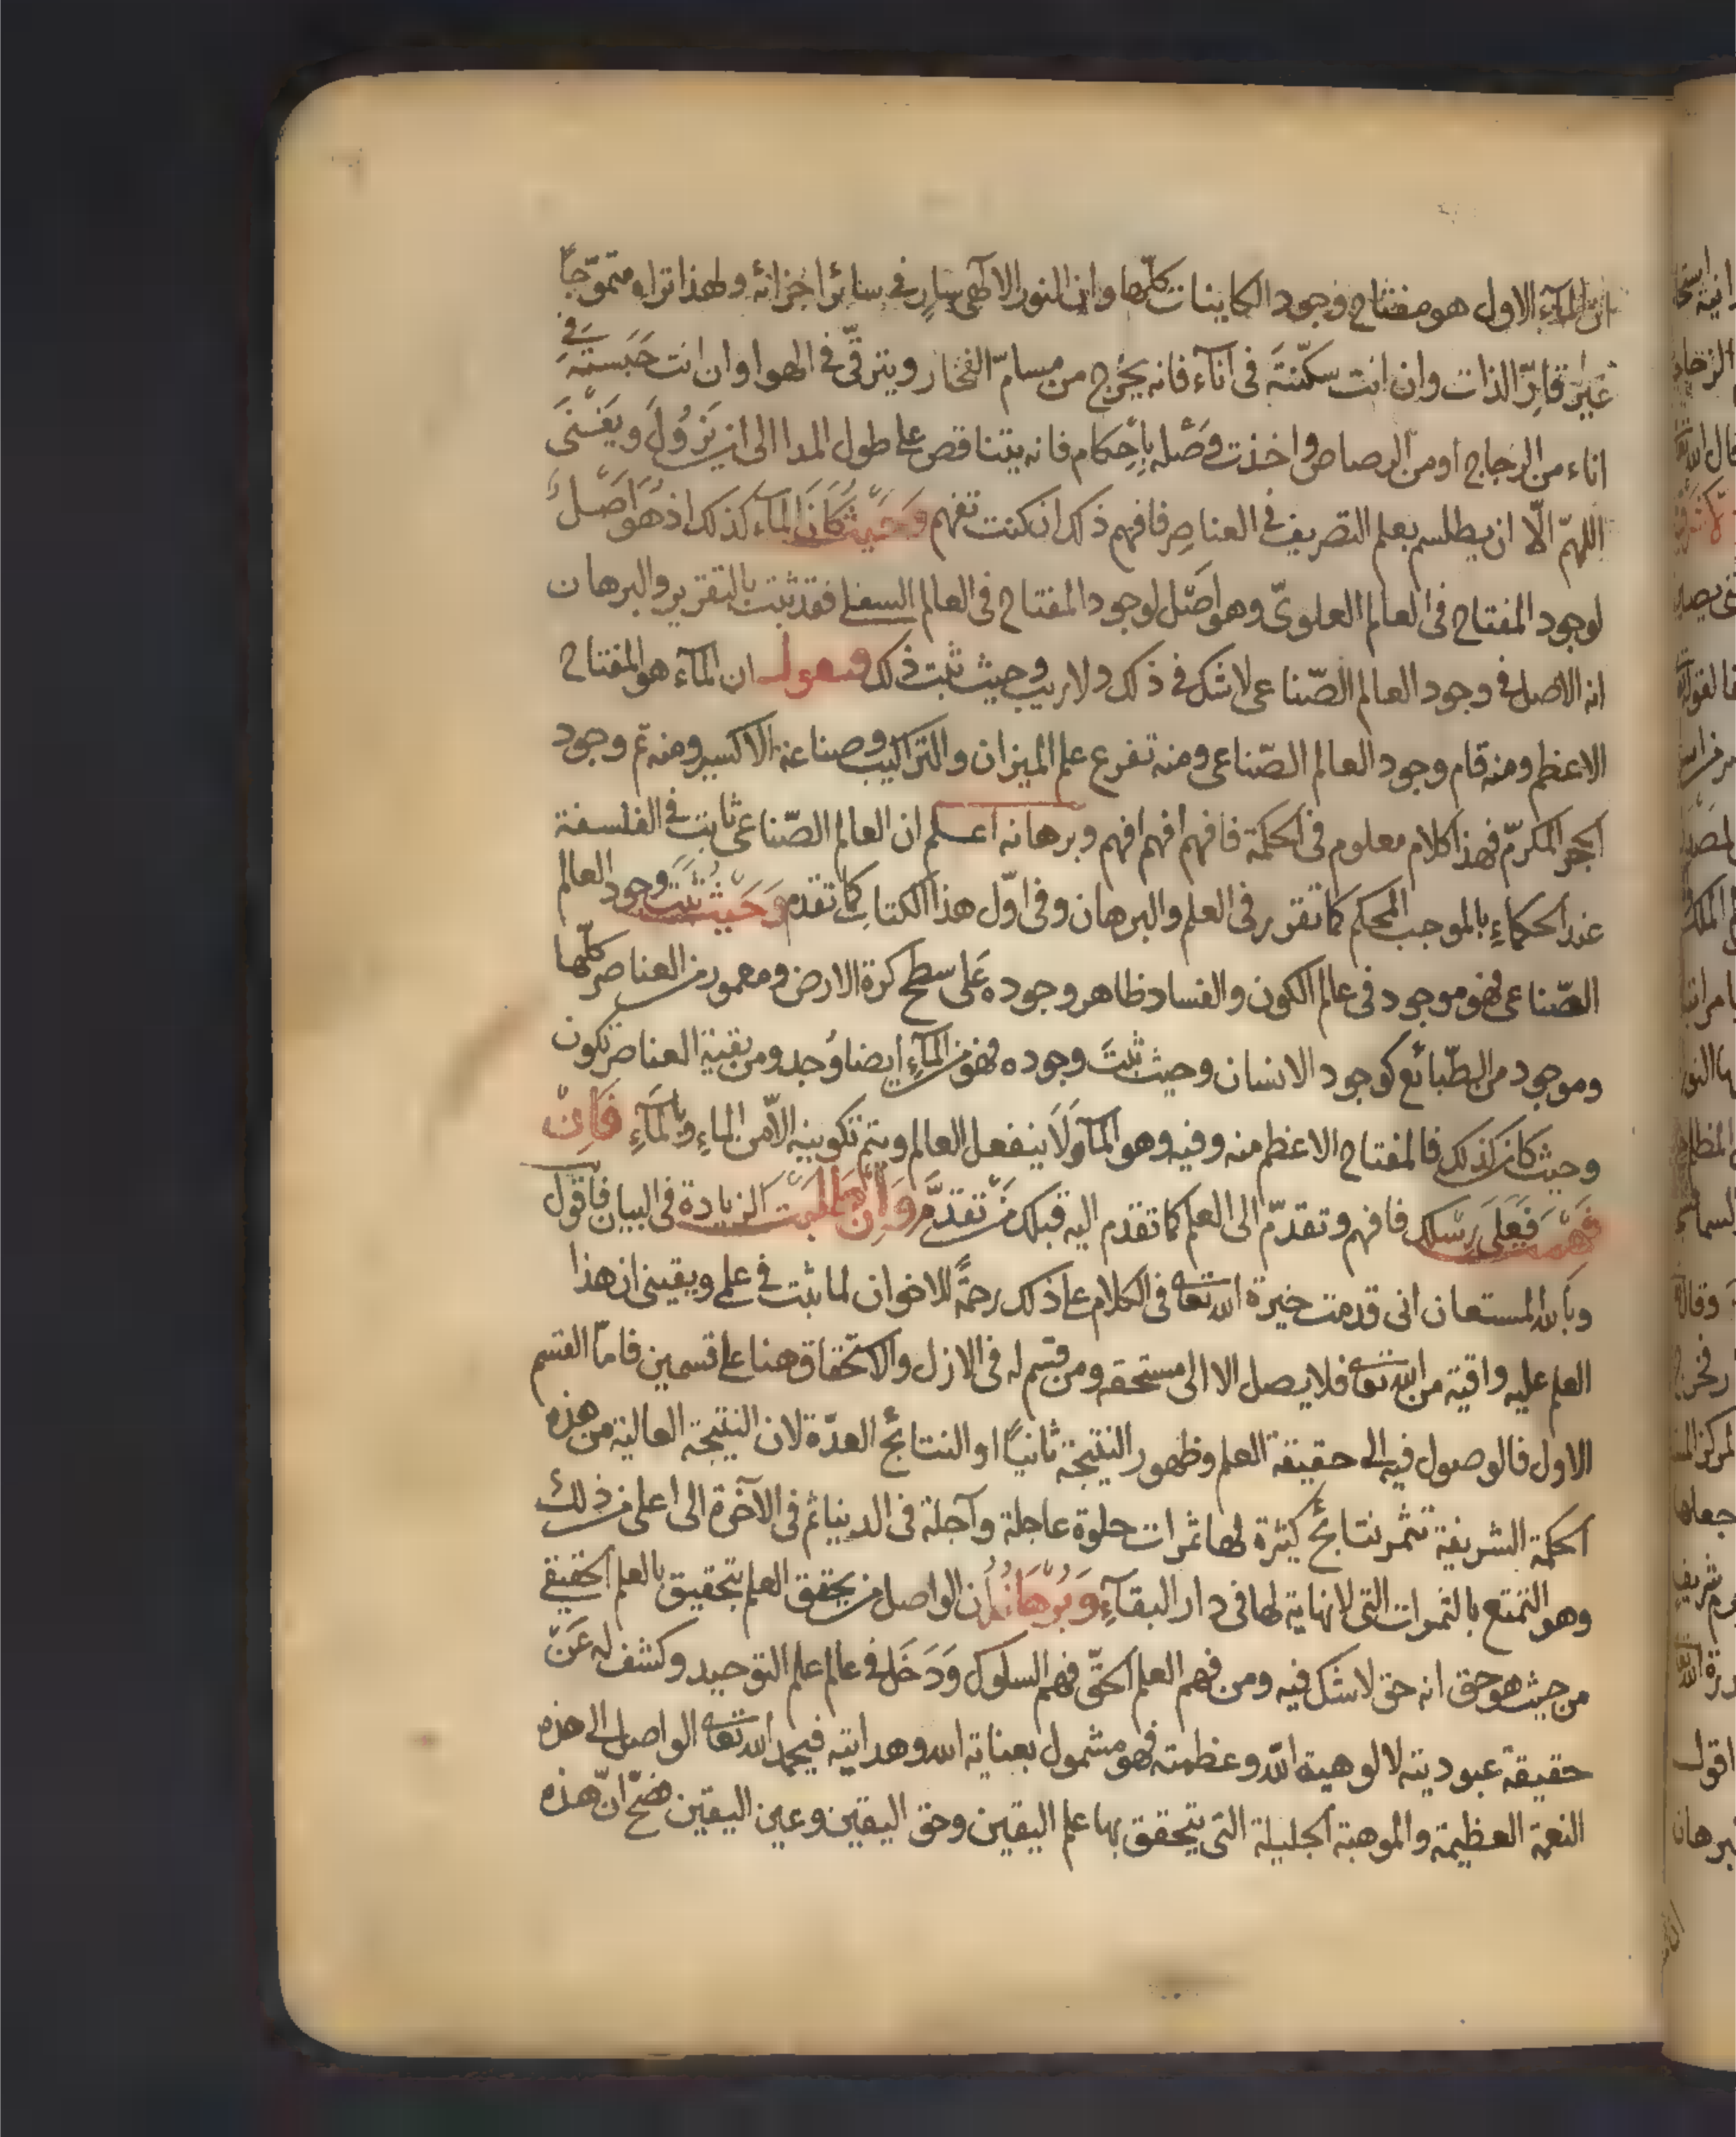 ان المآء الاول هو مفتاح وجود الكاينات كلّها وان النور الالٓهى سارٍ فى سائر اجزائه ولهذا تراه متموّجاً
غير قارّ الذات وان انت سكّنتَه فى انآء فانه يخرج من مسامّ الفخار ويترقّى فى الهوا وان انت حَبَستَه فى
اناء من الزجاج او من الرصاص واخذت وَصْله بِاحكام فانه يتناقص على طول المدا الى ان يَزُولَ ويَفْنَى
اللهمّ الّا ان يطلسم بعلم التصريف فى العناصِر فافهم ذلك ان كنت تفهم وَحَيْثُ كَانَ المآء كذلك اذ هُوَ اَصْلُ
لوجود المفتاح فى العالم العلوىّ وهو اصْل لوجود المفتاح فى العالم السفلى فقد ثبت بالتقرير والبرهان
انه الاصل فى وجود العالم الصّناعى لا شك فى ذلك ولا ريب وحيث ثبت ذلك ونقول ان المآء هو المفتاح
الاعظم ومنه قام وجود العالم الصّناعى ومنه تفرع علم الميزان والتراكيب وصناعة الاكسير ومنه تم وجود
الحجر المكرّم فهذا كلام معلوم فى الحكمة فافهم افهم افهم وبرهانه اعلم ان العالم الصّناعى ثابت فى الفلسفة
عند الحكماءِ بالموجب المحكم كما تقرر فى العلم والبرهان وفى اوّل هذا الكتابِ كما تقدم وَحَيْثُ ثَبَتَ وجود العالم
الصّناعى فهو موجود فى عالم الكون والفساد ظاهر وجوده عَلى سطح كرة الارض ومعمور من العناصر كلّها
وموجود من الطّبائع كوجود الانسان وحيث ثبتَ وجوده فهو من المآءِ ايضا وُجد ومن بقية العناصر تكون
وحيث كان كذلك فالمفتاح الاعظم منه وفيه وهو المآ وَلَا ينفعل العالم ويتم تكوينه الّا من الماءِ وبالمآءِ فَاِنْ
فَهِمْتَ فَعَلَى رِسْلِكَ فافهم وتقدّم الى العلم كما تقدم اليه قبلك مَنْ تَقَدَّمَ وَاِنْ طَلَبْتَ الزيادة فى البيان فاقول
وبالله المستعان انى قدمت خيرة الله تعا فى الكلام على ذلك رحمةً للاخوان لما ثبت فى علمى ويقينى ان هذا
العلم عليه واقية من الله تعا فلا يصل الا الى مستحقه ومن قسم له فى الازل والاستحقاق هنا على قسمين فامّا القسم
الاول فالوصول فيه الى حقيقة العلم وظهور النتيجة ثانياً او النتائج العدّة لان النتيجة العالية من هذه
الحكمة الشريفة تثمر نتائج كثيرة لها ثمرات حلوة عاجلة وآجلة فى الدنيا ثم فى الآخرة الى اعلى من ذلك
وهو التمتع بالثمرات التى لا نهاية لها فى دار البقآءِ وَبُرْهَانُهُ ان الواصل من يحقق العلم بتحقيق بالعلم الحقيقى
من حيث هو حق انه حق لا شك فيه ومن فهم العلم الحقّ فهم السلوك وَدَخَل فى عالم علم التوحيد وكشف له عَنْ
حقيقة عبوديته لالوهية الله وعظمته فهو مشمول بعناية الله وهدايته فيحمد الله تعا الواصل الى هذه
النعمة العظيمة والموهبة الجليلة التى يتحقق بها علم اليقين وحق اليقين وعين اليقين فصحّ انّ هذه